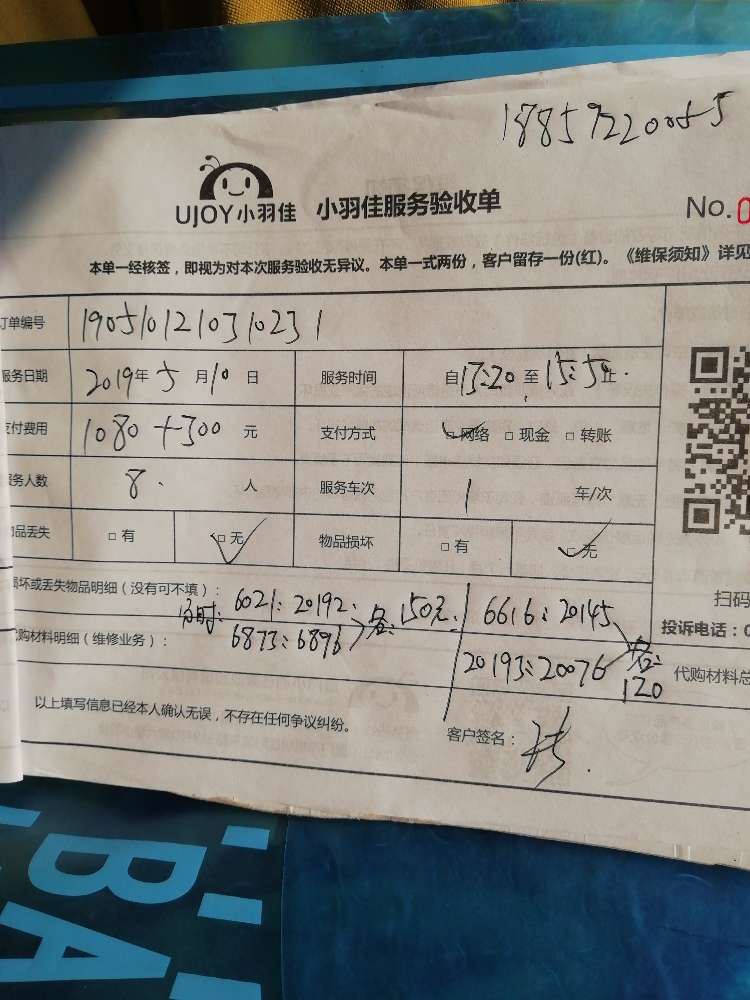 18859220055
UJOY小羽佳 小羽佳服务验收单 No.0
本单一经核签，即视为对本次服务验收无异议。本单一式两份，客户留存一份(红)。《维保须知》详见
订单编号 1905101210310231
服务日期 2019年5月10日 服务时间 自13:20至15:50止
支付费用 1080+300元 支付方式 □网络 □现金 □转账
服务人数 8人 服务车次 1车/次
物品丢失 □有 □无 物品损坏 □有 □无
损坏或丢失物品明细（没有可不填）：
6021:20192 6873:6896 各:150元 6616:20145 20193:20076 各:120
代购材料明细（维修业务）：
扫码
投诉电话：0
代购材料总
以上填写信息已经本人确认无误，不存在任何争议纠纷。 客户签名：
BA